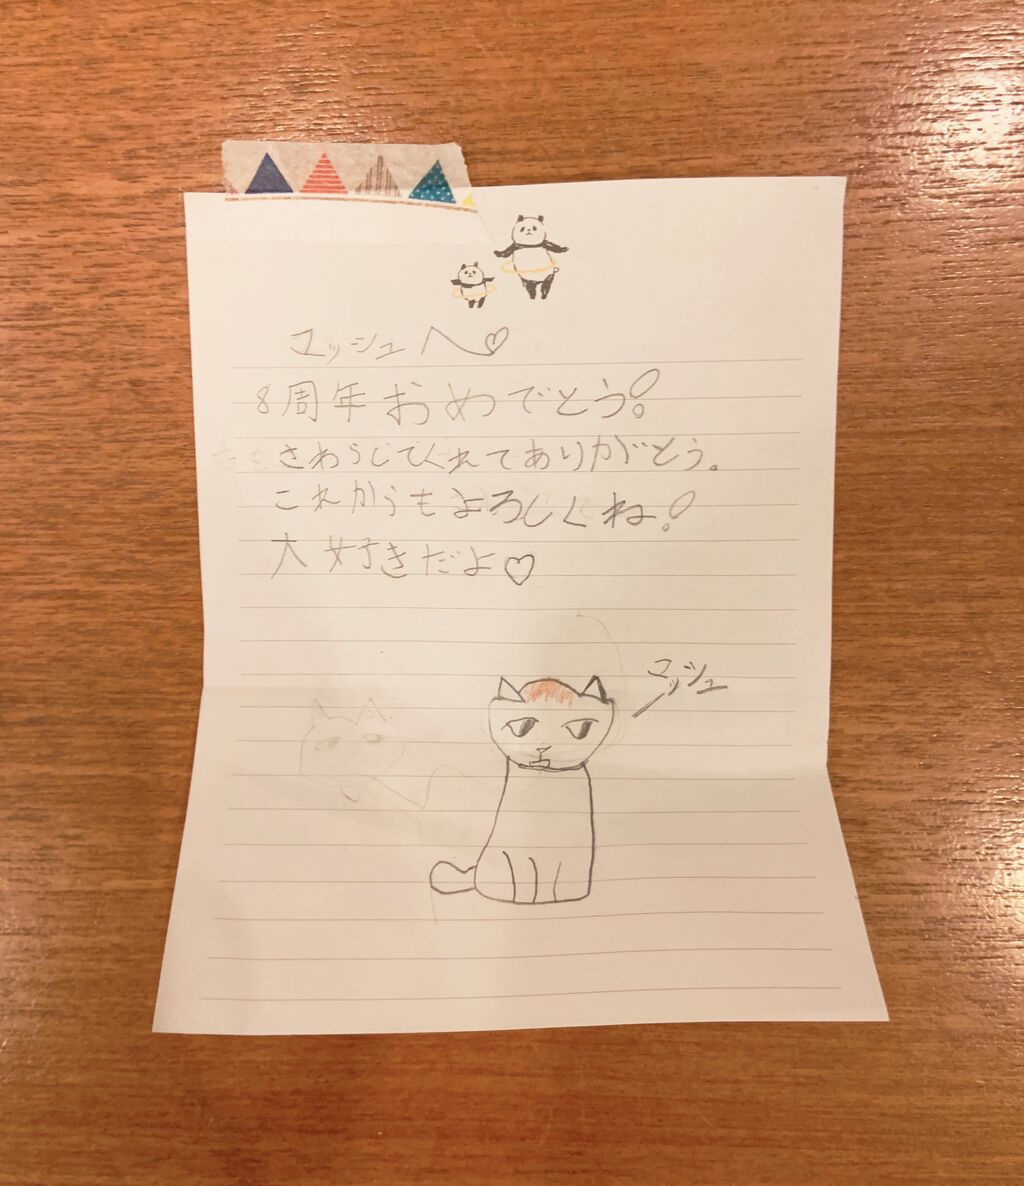 マッシュへ♡
8周年おめでとう!
さわらしてくれてありがとう。
これからもよろしくね!
大好きだよ♡
マッシュ